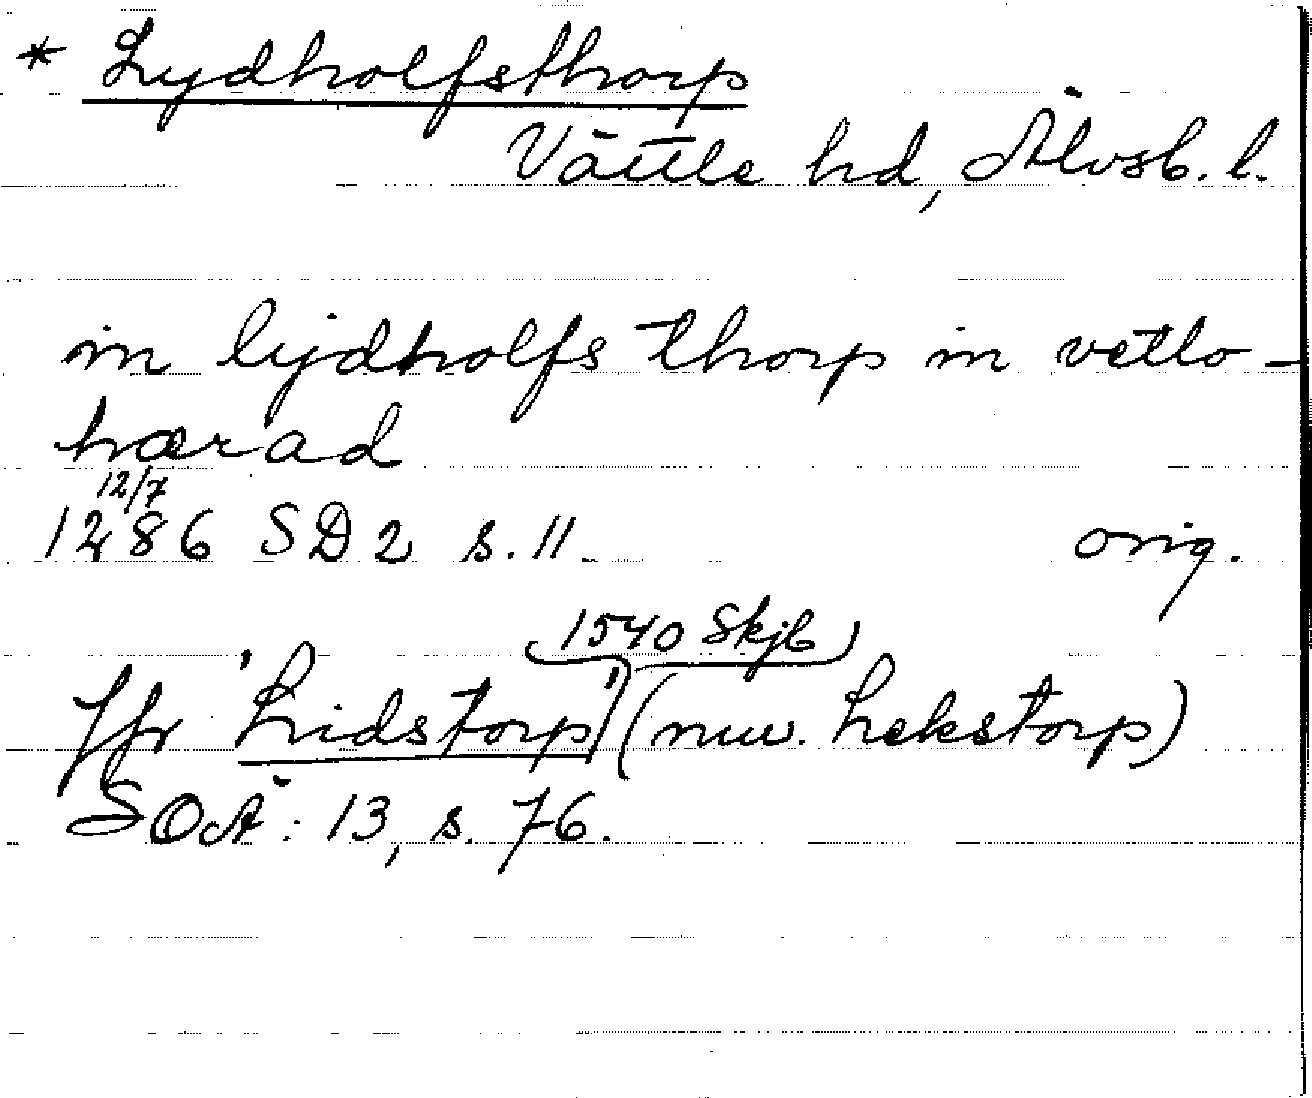 * Lydholfsthorp
Vättle hd, Älvsb. l.
in lydholfs thorp in vetlo-
hærad
12/7
1286 SD 2 s. 11
orig.
1540 Skjb
Jfr 'Lidstorp' (nuv. Lekstorp)
SOÄ: 13, s. 76.